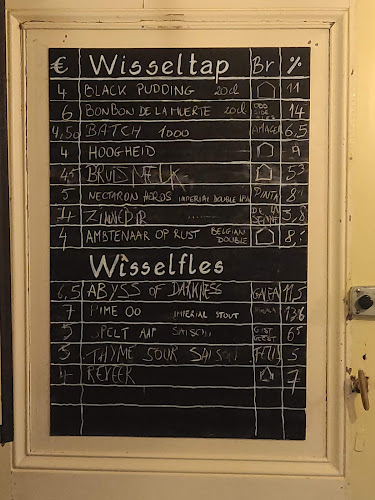 € Wisseltap Br %
4 BLACK PUDDING 20cl 11
6 BONBON DE LA MUERTE 20cl ODD SIDE ALES 14
4,50 BATCH 1000 AMAGER 6,5
4 HOOGHEID 9
4,5 BRUIS MELK 5
5 NECTARON HEROS IMPERIAL DOUBLE IPA PINTA 8
4 ZINNEBIR DE LA SENNE 5,8
4 AMBTENAAR OP RUST BELGIAN DOUBLE 8
Wisselfles
6,5 ABYSS OF DARKNESS GALEA 11,5
7 OO IMPERIAL STOUT
5 SPELT AAP SAISON 6
5 THYME SOUR SAISON 5
4 7